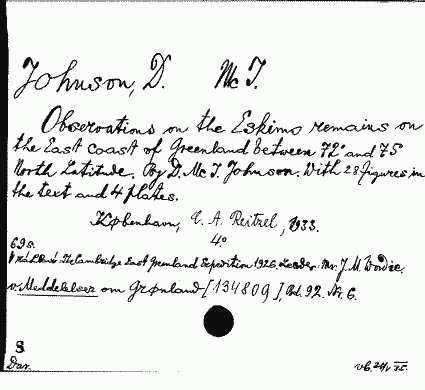 Johnson, D. Mc I.
Observations on the Eskimo remains on
the East coast of Greenland between 72° and 75°
North Latitude. By D. Mc I. Johnson. With 28 figures in
the text and 4 plates.
København, C. A. Reitzel, 1933.
4°
69 s.
The Cambridge East Greenland Expedition 1926. Leader: Mr. J. M. Wordie.
v. Meddelelser om Grønland [134809], Bd. 92. Nr. 6.
S
Dav.
35.